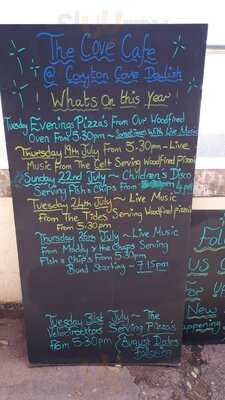 The Cove Cafe
@ Coryton Cove Dawlish
! Whats On this year !
Tuesday Evenings Pizza's From Our Woodfired
Oven From 5.30pm ~ Sometimes With Live Music
Thursday 19th July From 5.30pm ~ Live
Music From The Celt Serving Woodfired Pizzas
Sunday 22nd July ~ Children's Disco
Serving Fish & Chips From 4pm
Tuesday 24th July ~ Live Music
From The Tides Serving Woodfired pizzas
From 5.30pm
Thursday 26th July ~ Live Music
From Maddy & the Chaps Serving
Fish & Chips From 5.30pm
Band Starting ~ 7.15pm
Tuesday 31st July ~ The
Velocirocktors Serving Pizza's
From 5.30pm
August Dates
Follo
US O
New
appening